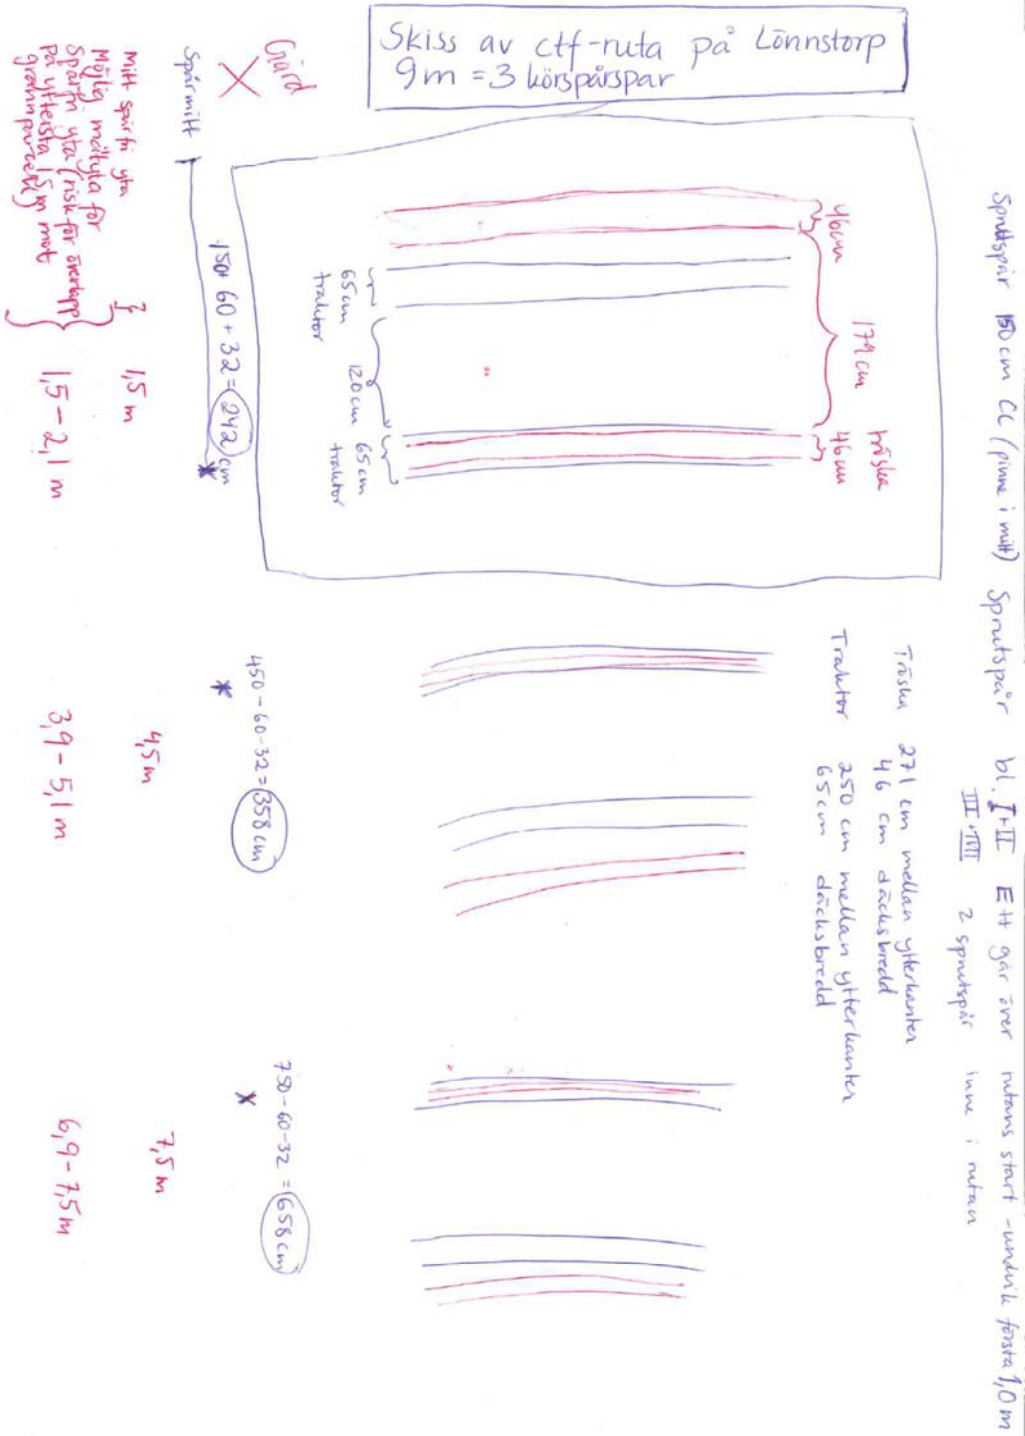 Skiss av ctf-ruta på Lönnstorp
9m = 3 körspårspar
Sprutspår 150 cm CC (pinne i mitt) Sprutspår bl. I+II EH går över rutans start - undvik första 1,0 m
III+IIII 2 sprutspår inne i rutan
Tröska 271 cm mellan ytterkanter
46 cm däcksbredd
Traktor 250 cm mellan ytterkanter
65 cm däcksbredd
tröska
46cm
179 cm
46cm
65cm
traktor
120cm
65cm
traktor
Gärd
X
Spårmitt
150+60+32=242 cm
450-60-32=358 cm
750-60-32=658 cm
Mitt spårfri yta
1,5 m
4,5 m
7,5 m
Möjlig mätyta för
spårfri yta (risk för överlapp
på yttersta 1,5m mot
grannparcell)
1,5-2,1 m
3,9-5,1 m
6,9-7,5 m